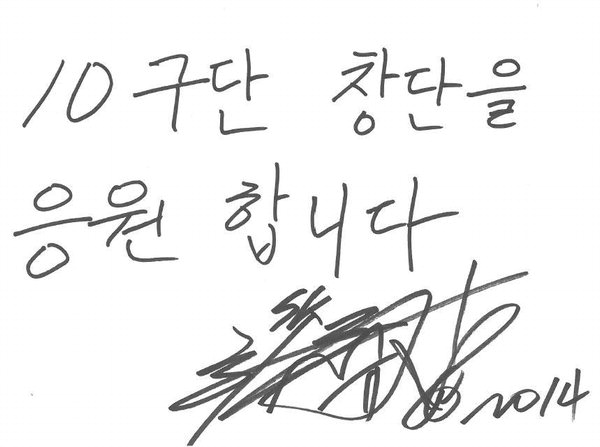 10구단 창단을
응원 합니다
2014